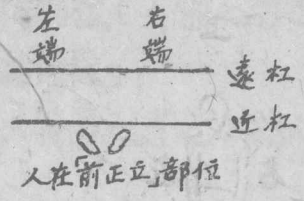 左端 右端
遠杠
近杠
人在「前正立」部位